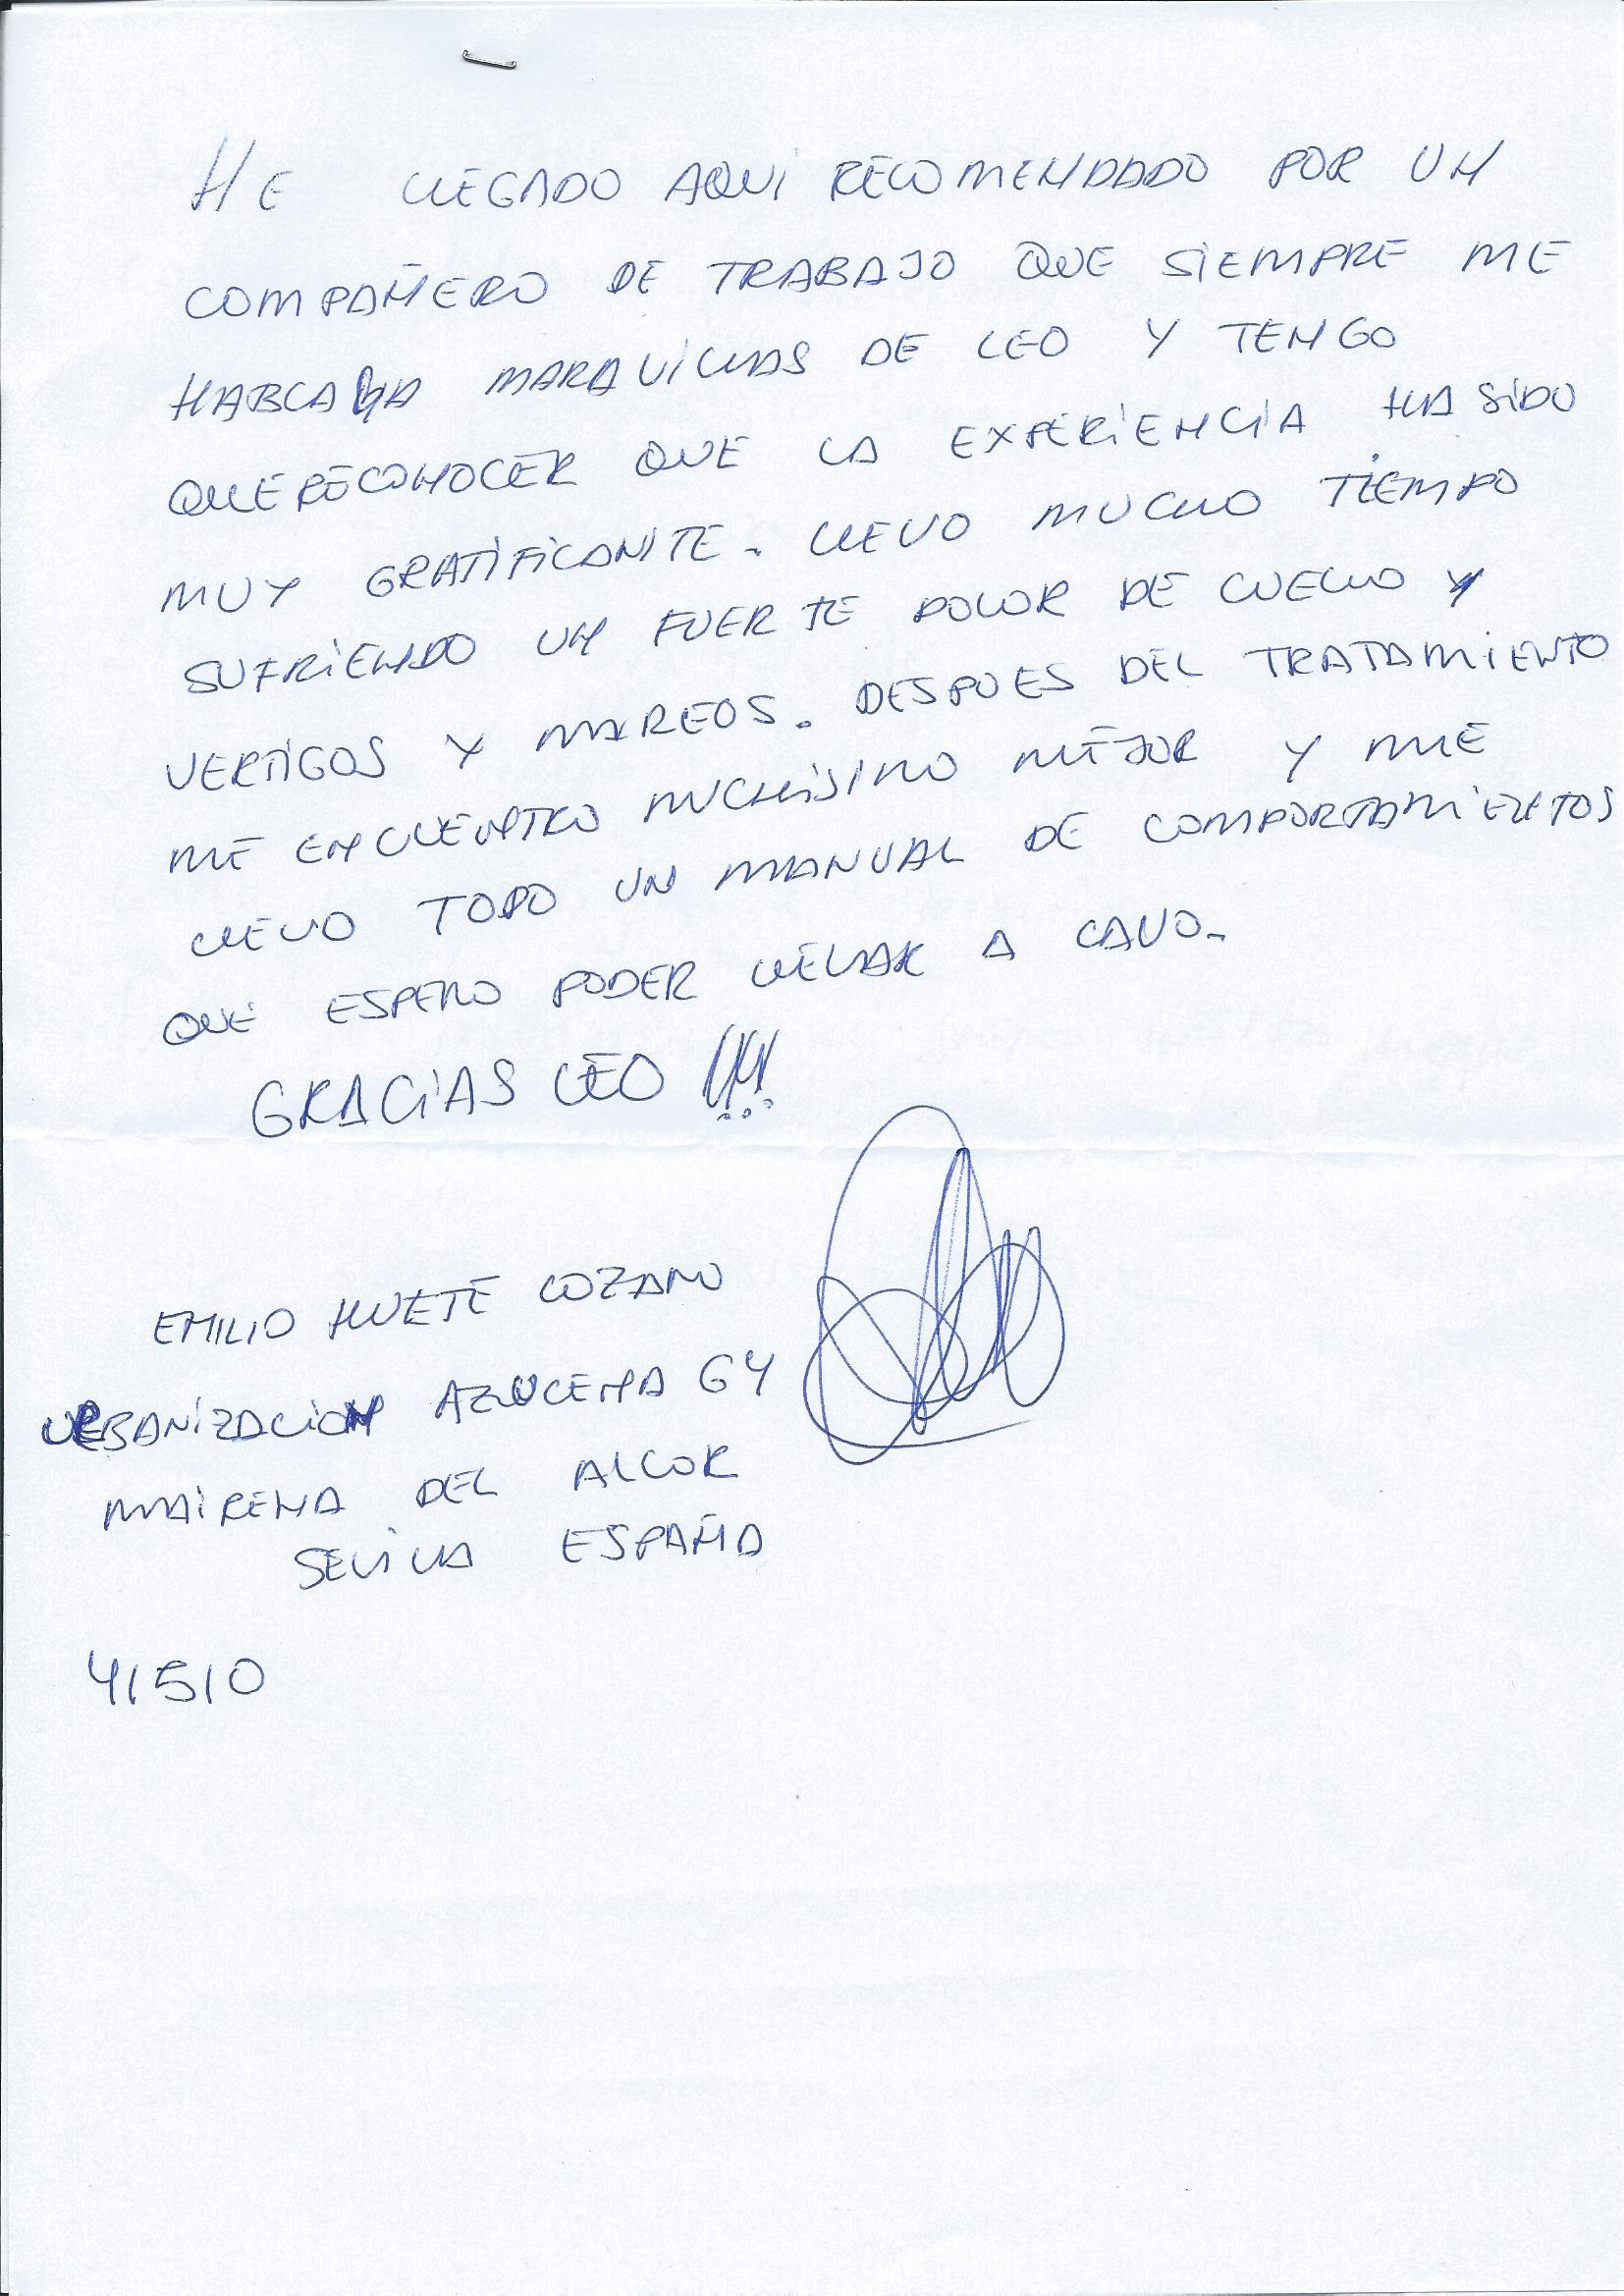 HE LLEGADO AQUI RECOMENDADO POR UN
COMPAÑERO DE TRABAJO QUE SIEMPRE ME
HABLABA MARAVILLAS DE LEO Y TENGO
QUE RECONOCER QUE LA EXPERIENCIA HA SIDO
MUY GRATIFICANTE. LLEVO MUCHO TIEMPO
SUFRIENDO UN FUERTE DOLOR DE CUELLO Y
VERTIGOS Y MAREOS. DESPUES DEL TRATAMIENTO
ME ENCUENTRO MUCHISIMO MEJOR Y ME
LLEVO TODO UN MANUAL DE COMPORTAMIENTOS
QUE ESPERO PODER LLEVAR A CAVO.
GRACIAS LEO !!!
EMILIO HUETE LOZANO
URBANIZACION AZUCENA 64
MAIRENA DEL ALCOR
SEVILLA ESPAÑA
41510